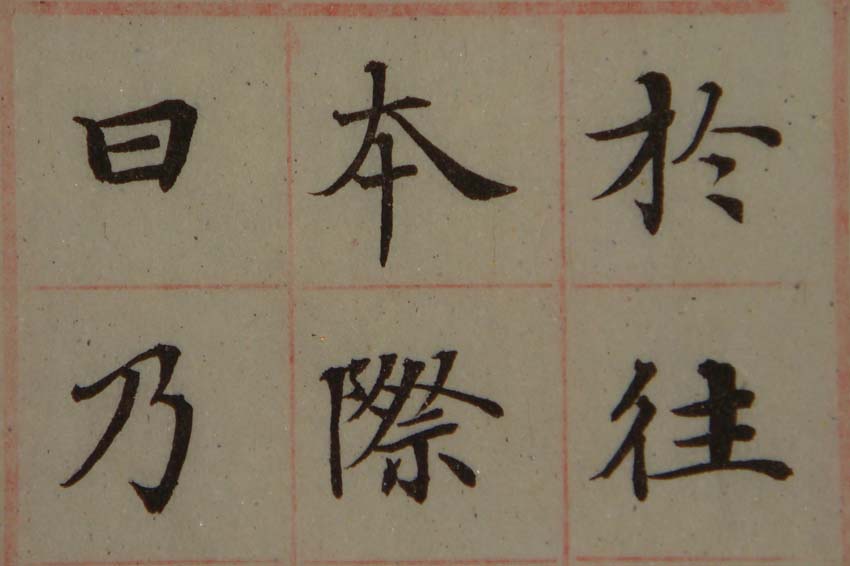 於往
本際
曰乃